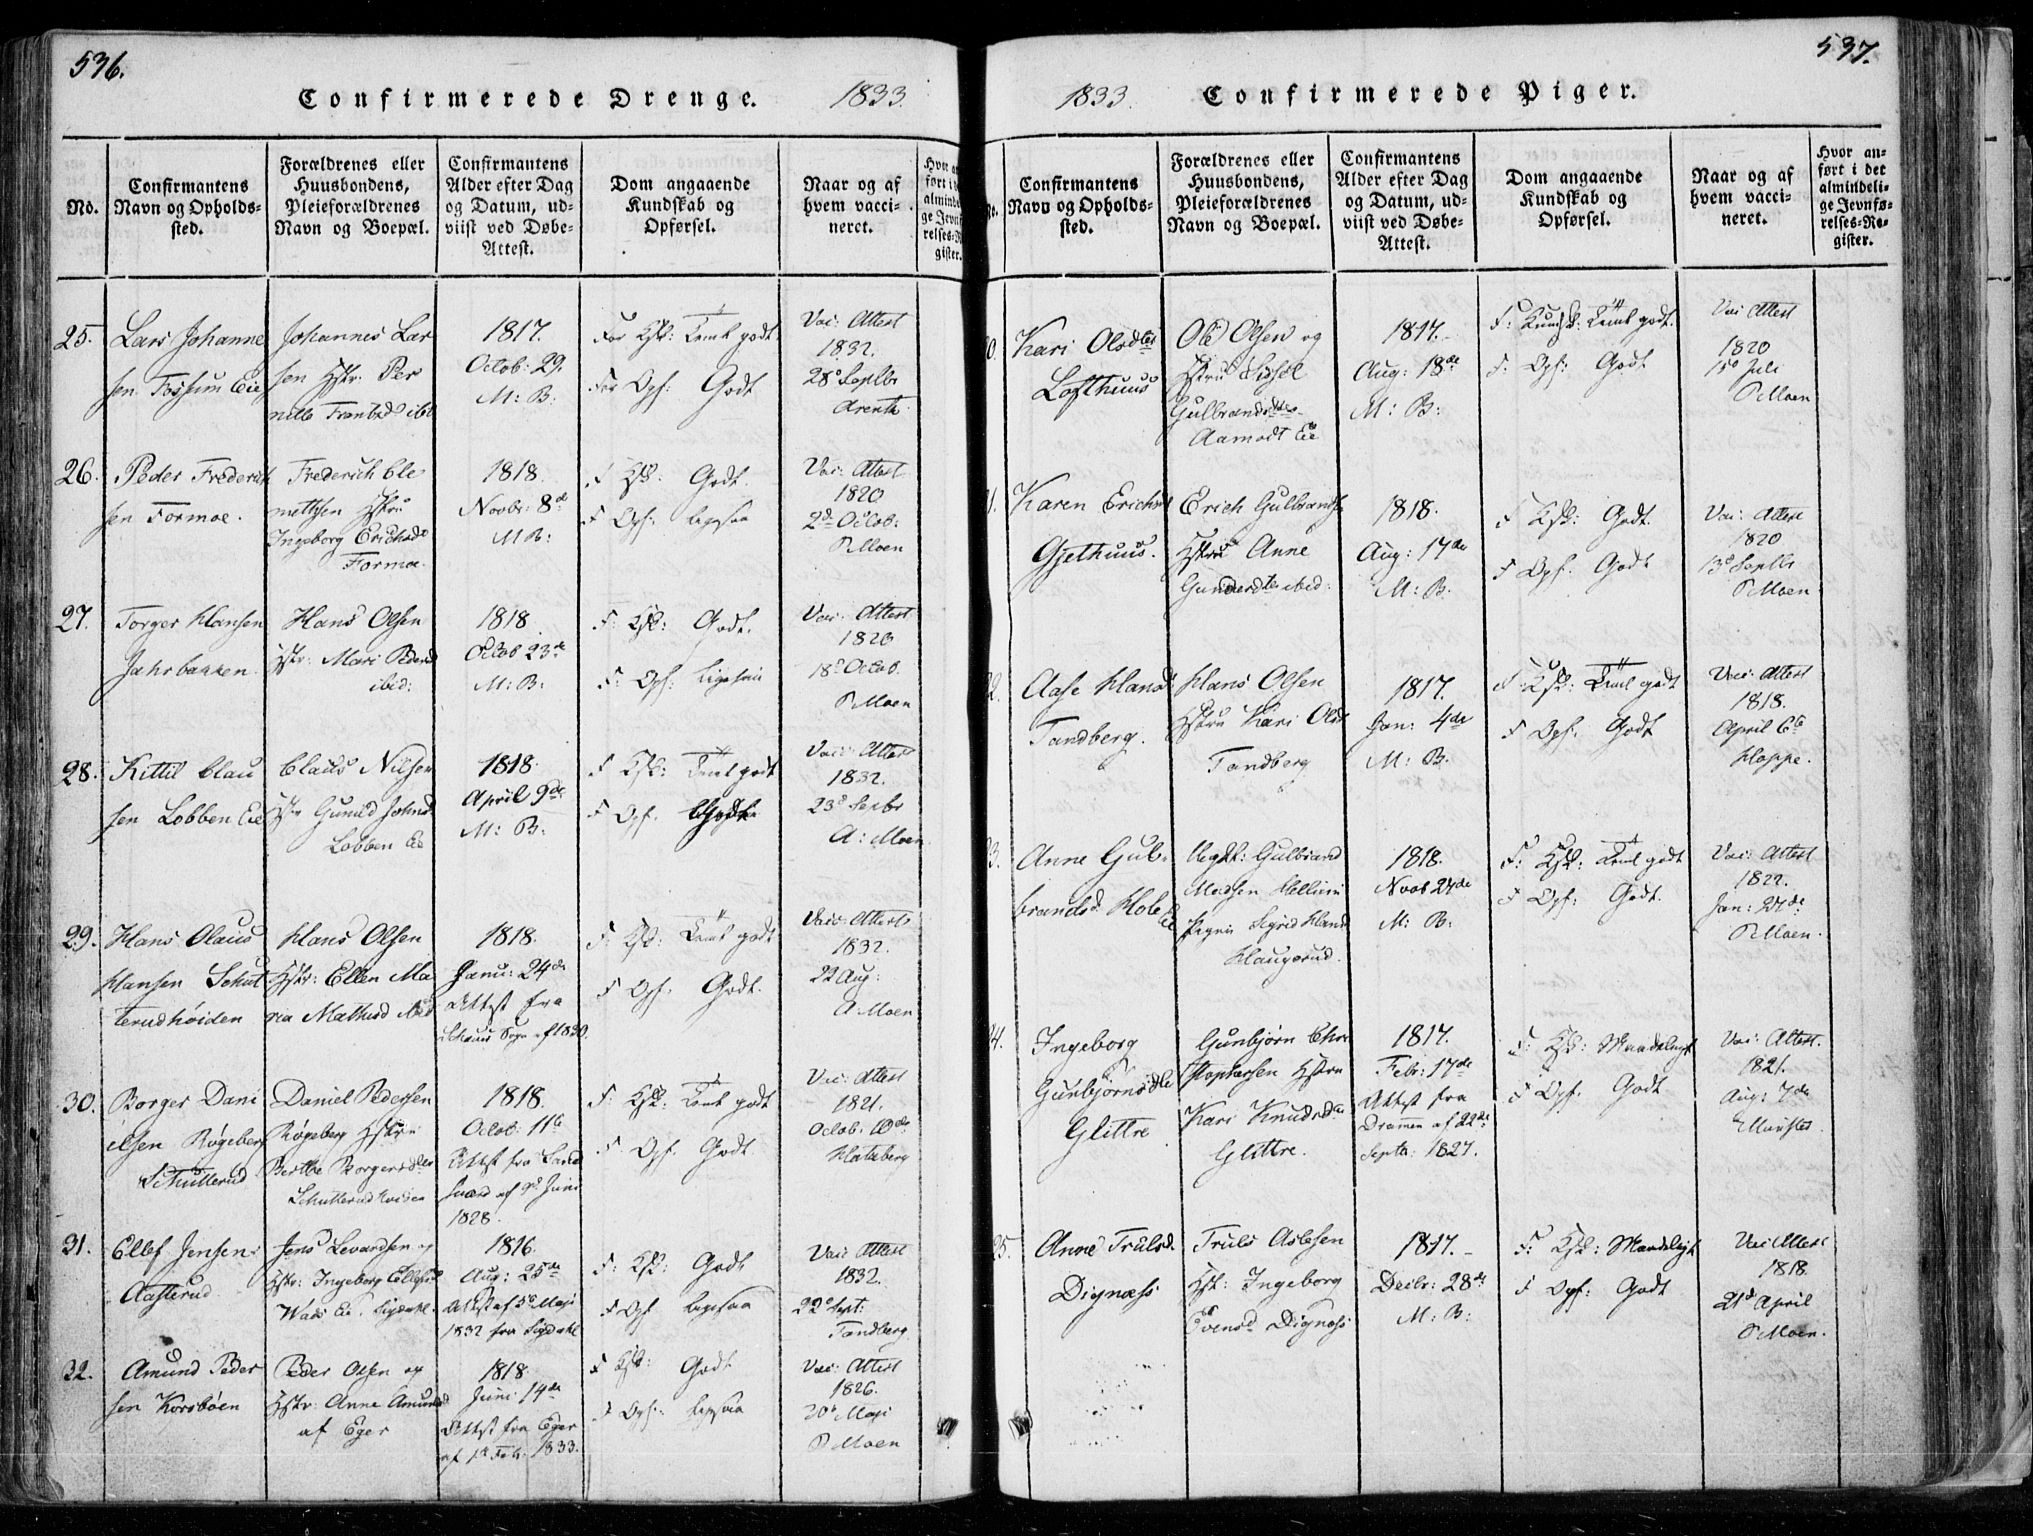 536.
Confirmerede Drenge. 1833.
No.
Confirmantens
Navn og Opholds-
sted.
Forældrenes eller
Huusbondens,
Pleieforældrenes
Navn og Boepæl.
Confirmantens
Alder efter Dag
og Datum, ud-
viist ved Døbe-
Attest.
Dom angaaende
Kundskab og
Opførsel.
Naar og af
hvem vacci-
neret.
25.
Lars Johanne
sen Fossum Eie
Johannes Lar
sen Hstr: Per
1817.
Octob: 29.
M: B:
For Ksk: Temt godt
For Opf: Godt
Vac: Attest
1832.
28 Septbr
26.
Peder Frederich
sen Formoe.
Frederich Cle
mettsen Hstru
Ingeborg Erichsd
Formoe.
1818.
Novbr: 8d
M B:
F Ksk: Godt.
F Opf: ligesaa
Vac: Attest
1820
2d Octob:
P Moen
27.
Torger Hansen
Jahrbakken.
Hans Olsen
Hstr: Mari Pedersd
ibid:
1818
Octob 23de
M: B:
F: Ksk: Godt.
F: Opf: ligesaa
Vac: Attest
1820
18 Octob.
P Moen
28.
Kittil Clau
sen Lobben Eie
Claus Nilsen
Hstr Gunild Johnsd
Lobben Eie
1818.
April 9de
M: B:
F Ksk: Temt godt
F Opf. Godt
Vac: Attest
1832.
A: Moen
29.
Hans Olaus
Hansen Schut
terudhöiden
Hans Olsen
Hstr: Ellen Ma
ria Mathisd ibid
1818.
Janu: 24de
Attest fra
F: Ksk: Temt godt
F Opf. Godt.
Vac: Attest
1832.
22 Aug:
A Moen
30.
Borger Dani
elsen Røgeberg
Schutterud
Daniel Pedersen
Røgeberg Hstru
Berthe Borgersdter
Schutterudhøiden
1818.
Octob: 11te
Attest fra Sand
sværd af 9d Juni
1828.
F: Ksk: Temt godt
F Opf. Godt.
Vac: Attest
1821.
Octob: 10de
31.
Ellef Jensen
Aasterud
Jens Levardsen og
Hstr: Ingeborg Ellefsd
1816.
Aug: 25de
Attest af 5te Maji
1832 fra Sigdahl
F: Ksk: Godt
F Opf ligesaa
Vac: Attest
1832.
22 Sept:
Tandberg
32.
Amund Peder
sen Korsbøen
Peder Olsen og
Hstr: Anne Amundsd
af Eger
1818.
Juni 14de
Attest fra Eger
af 1te Feb: 1833.
F Ksk: Godt
F Opf: ligesaa
Vac: Attest
1826.
20 Maji
P Moen
537.
1833. Confirmerede Piger.
Confirmantens
Navn og Opholds-
sted.
Forældrenes eller
Huusbondens,
Pleieforældrenes
Navn og Boepæl.
Confirmantens
Alder efter Dag
og Datum, ud-
viist ved Døbe-
Attest.
Dom angaaende
Kundskab og
Opførsel.
Naar og af
hvem vacci-
neret.
Hvor an-
ført i det
almindeli-
ge Jevnfø-
relses-Re-
gister.
Kari Olsdter
Lofthuus
Ole Olsen og
Hstru Sissel
Gulbrandsdter
Aamodt Eie
1817.
Aug: 18de
M: B:
F: Kundsk: Temt godt.
F: Opf: Godt
Vac Attest
1820
15 Juli
P Moen
Karen Erichsd
Gjethuus.
Erich Gulbrandsen
Hstru Anne
1818.
Aug: 17de
M: B.
F Ksk: Godt.
F Opf. Godt
Vac: Attest
1820
13 Septbr
P Moen
Aase Hansd
Tandberg.
Hans Olsen
Hstru Kari Olsd
Tandberg
1817.
Jan: 4de
M: B:
F: Ksk: Temt godt
F Opf. Godt
Vac: Attest
1818.
April 6te
Hoppe.
Anne Gul-
brandsd. Hole Eie
Ungk: Gulbrand
Madsen
Pigen Sigrid Hansd
Haugerud.
1818.
Novb 27de
M: B:
F: Ksk: Temt godt
F Opf: Godt.
Vac: Attest
1822.
Jan: 27de
P Moen.
Ingeborg
Gunbjørnsdtr
Glittre
Gunbjørn Chri
stophersen Hstru
Kari Knudsd
Glittre.
1817.
Febr: 17de
Attest fra
Dramen af 22de
Septb: 1827.
F: Ksk: Maadeligt
F Opf. Godt
Vac: Attest.
1821.
Aug: 7de
Anne Trulsd.
Dignæss
Truls Aslesen
Hst: Ingeborg
Evensd Dignæss
1817.
Decbr: 28de
M: B:
F: Ksk: Maadeligt
F Opf: Godt
Vac Attest
1818.
21d April
P Moen.